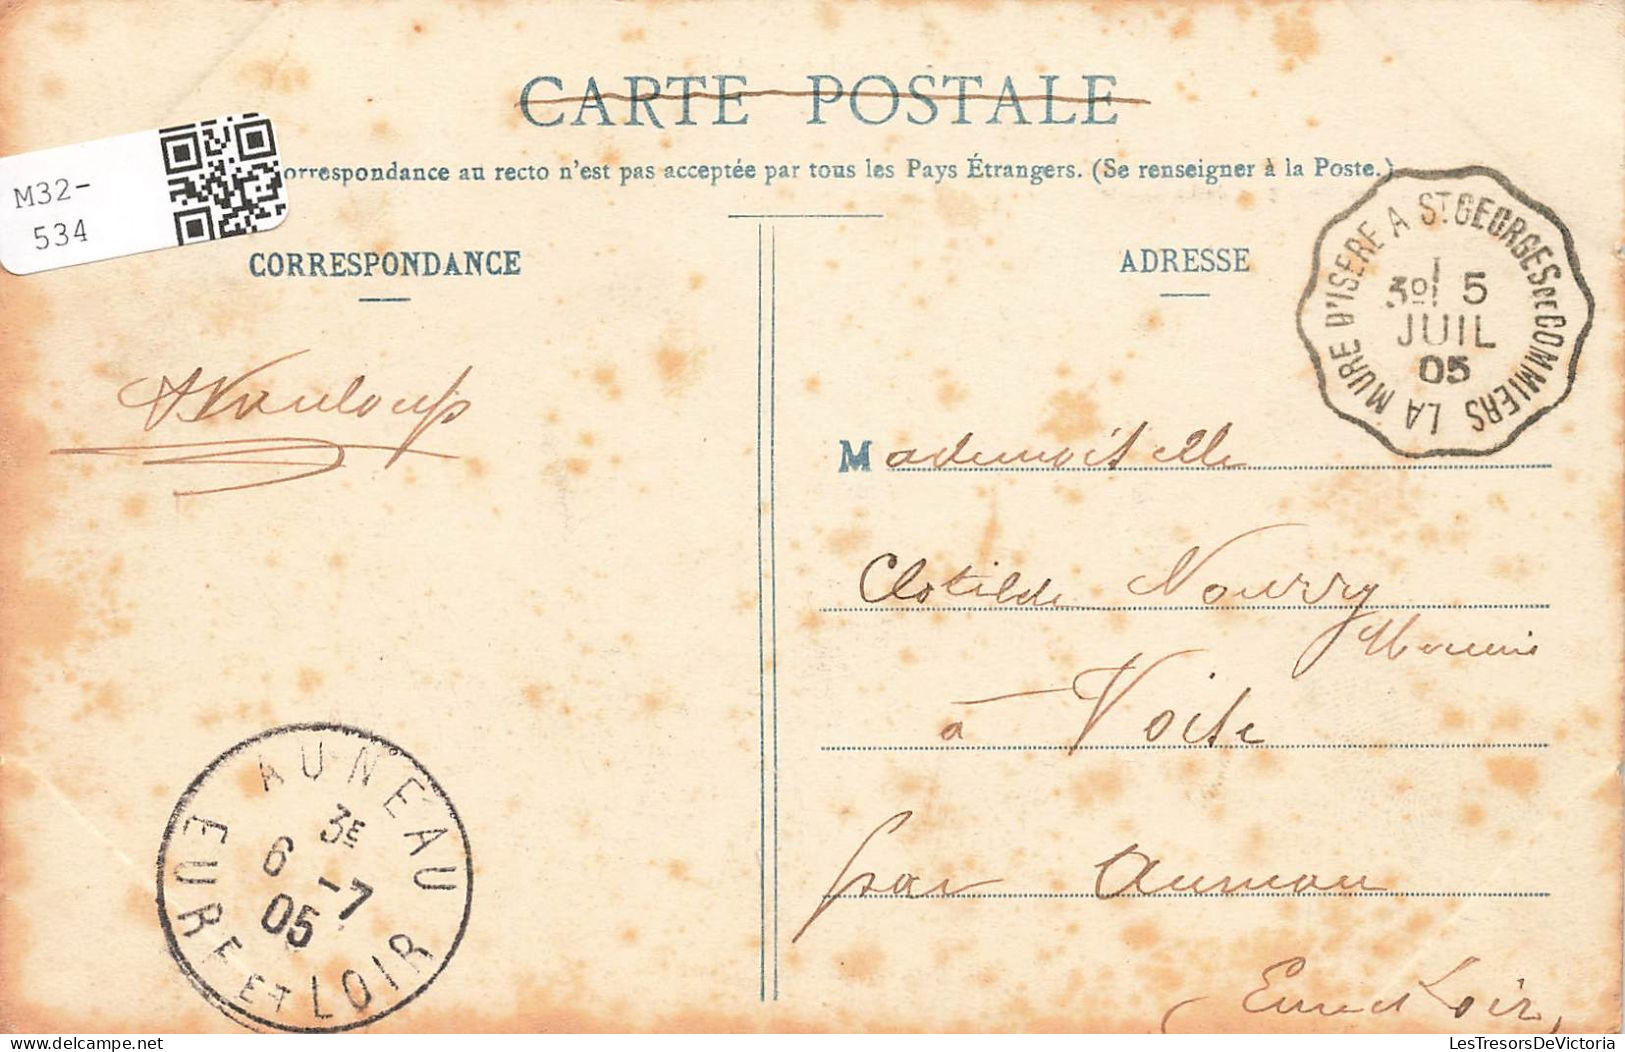 CARTE POSTALE
M32-
534
orrespondance au recto n'est pas acceptée par tous les Pays Étrangers. (Se renseigner à la Poste.)
CORRESPONDANCE
ADRESSE
LA MURE D'ISERE A ST GEORGES DE COMMIERS
5
JUIL
05
Mademoiselle
Clotilde Nourry
à Voise
par Auneau
Eure et Loir
AUNEAU
3E
6 -7
05
EURE ET LOIR
LesTresorsDeVictoria